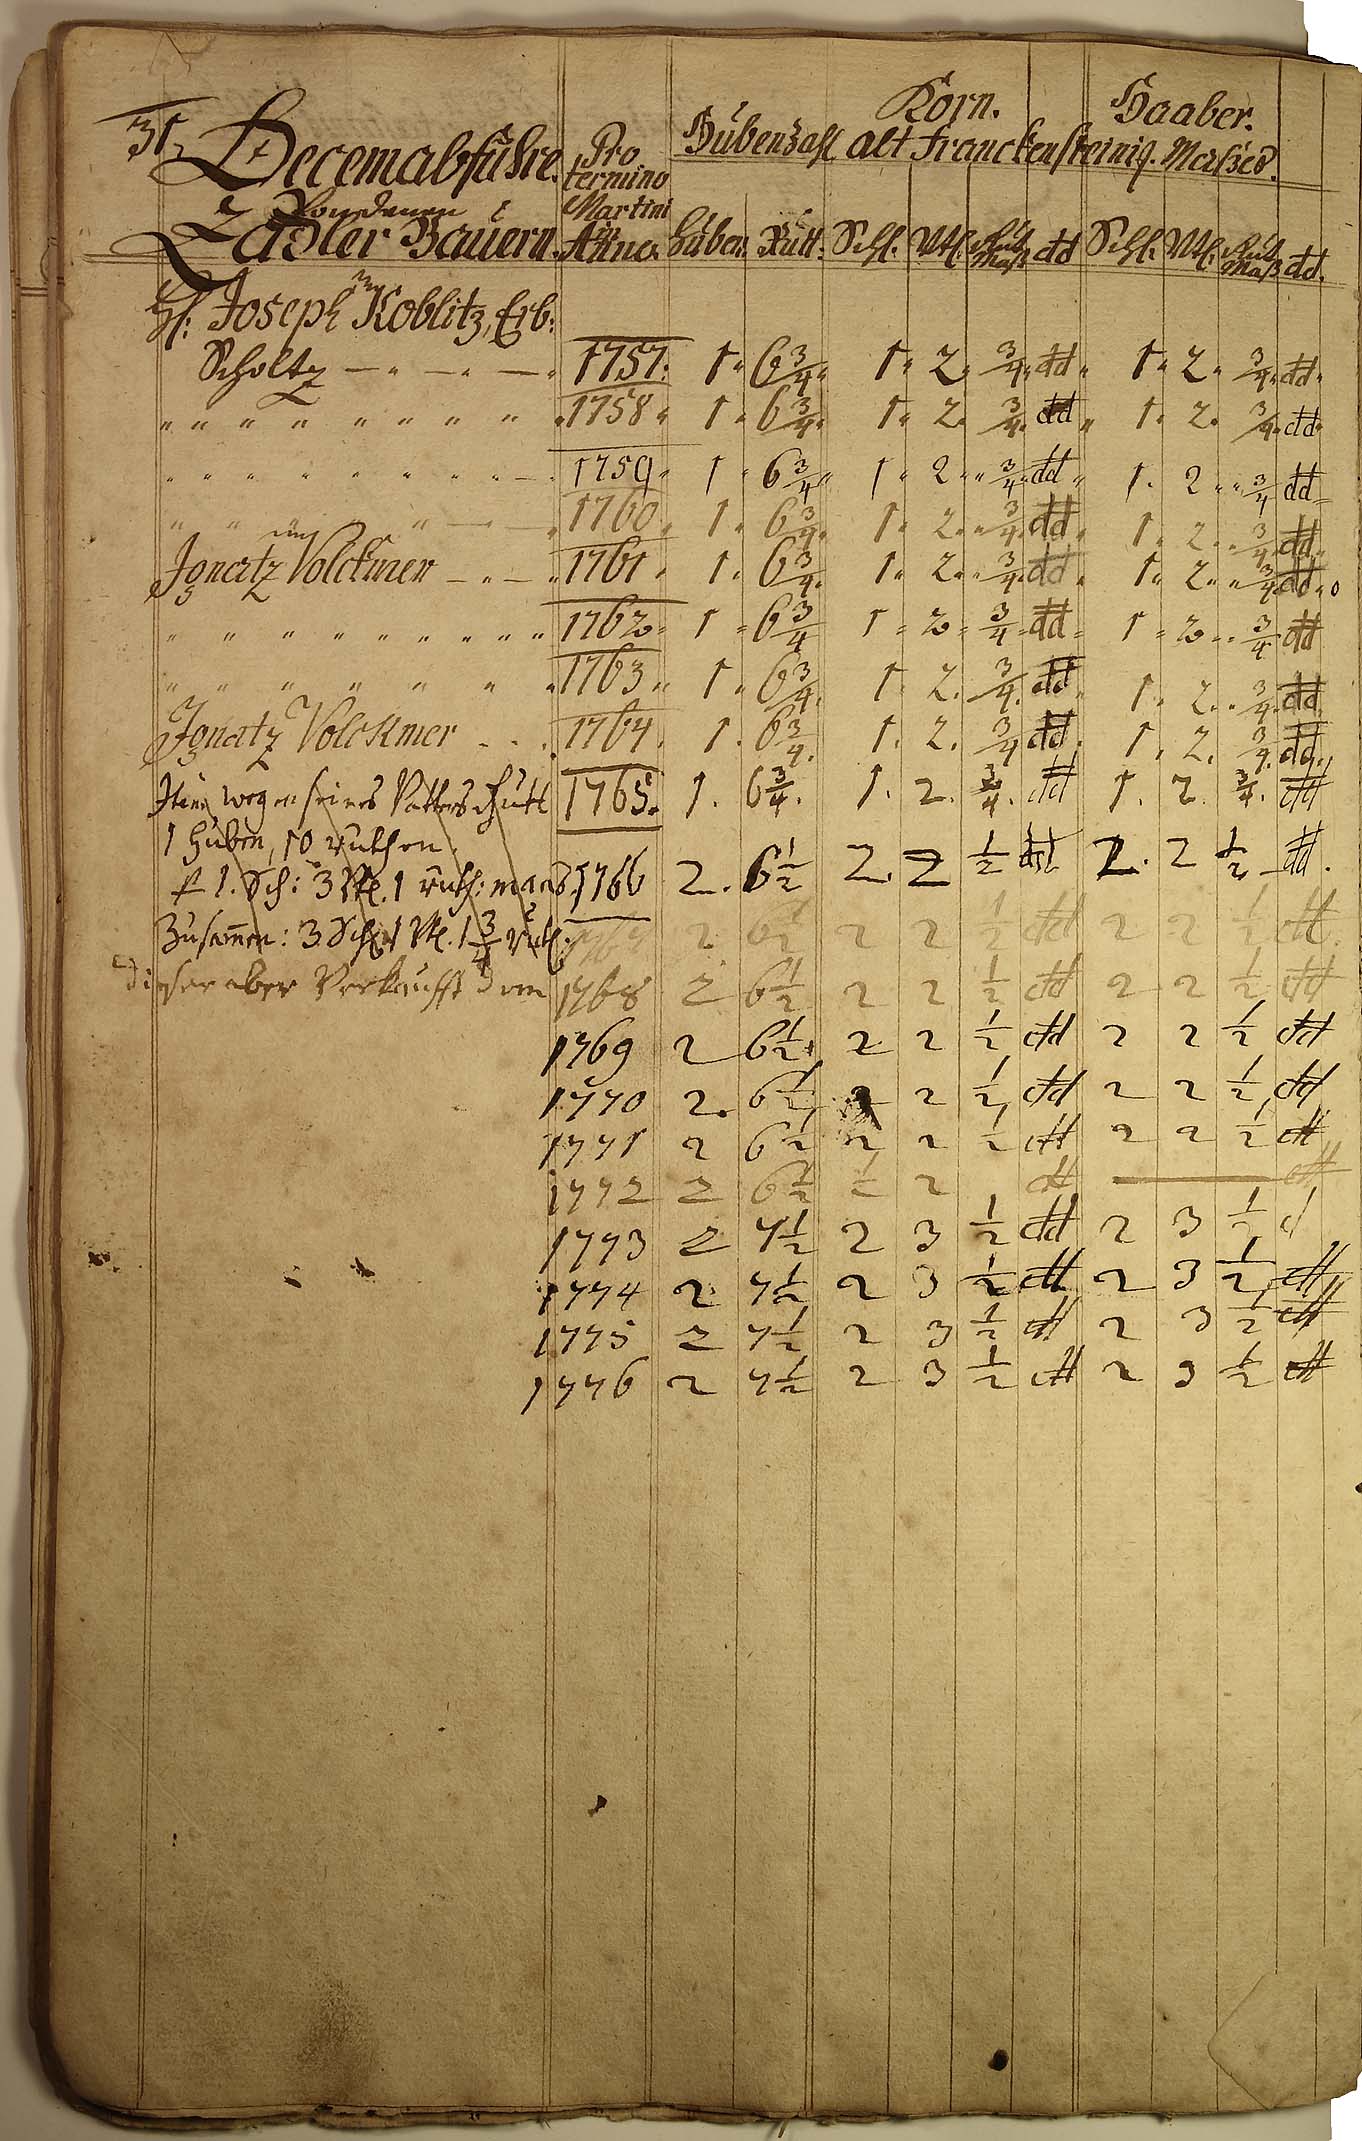 31.
Decemabführe. Pro termino Martini in Anno. Hübenzahl Korn. Haaber.
alt Franckensteinig. Maßes.
Von denen
Zadler Bauern. Huben. Rutt: Schl. Vtl. Rut Maß dd Schl. Vtl. Rut Maß dd.
H: Joseph Koblitz, Erb:
Scholtz — " — " — " 1757. 1 " 6 3/4 " 1 " 2. 3/4 " dd " 1 " 2 " 3/4 " dd "
" " " " " " " " " 1758 " 1 " 6 3/4 " 1 " 2. 3/4. dd " 1 " 2. 3/4. dd "
" " " " " " " " — 1759 " 1 " 6 3/4 " 1 " 2 " " 3/4. dd " 1. 2 " " 3/4 dd "
" " " — " — 1760 " 1 " 6 3/4. 1 " 2. " 3/4. dd. 1 " 2. " 3/4. dd.
Ignatz Volckmer — " — " 1761 " 1 " 6 3/4. 1 " 2. " 3/4. dd " 1 " 2. " 3/4. dd. o
" " " " " " " " " " 1762 " 1 " 6 3/4 1 " 2 " 3/4 " dd " 1 " 2 " " 3/4 dd
" " " " " " " 1763 " 1 " 6 3/4. 1 " 2. 3/4. dd " 1 " 2. " 3/4. dd.
Ignatz Volckmer - - . 1764. 1. 6 3/4. 1. 2. 3/4 dd. 1. 2. 3/4. dd.
Item wegen seines Vatters Gutt 1765. 1. 6 3/4. 1. 2. 3/4. dd 1. 2. 3/4. dd
1 Huben, 10 ruthen.
1. Sch: 3 Vtl. 1 ruth: maas. 1766 2. 6 1/2 2. 2 1/2 dd 2. 2 1/2 dd.
Zusammen: 3 Schl. 1 Vtl. 1 3/4 ruth. 1767 2 6 1/2 2 2 1/2 dd 2 2 1/2 dd.
dieser aber Verkaufft dem 1768 2 6 1/2 2 2 1/2 dd 2 2 1/2 dd
1769 2 6 1/2 2 2 1/2 dd 2 2 1/2 dd
1770 2. 6 1/2 2 2 1/2 dd 2 2 1/2 dd
1771 2 6 1/2 2 2 1/2 dd 2 2 1/2 dd
1772 2 6 1/2 1/2 2 dd — dd
1773 2 7 1/2 2 3 1/2 dd 2 3 1/2 d
1774 2 7 1/2 2 3 1/2 dd 2 3 1/2 dd
1775 2 7 1/2 2 3 1/2 dd 2 3 1/2 dd
1776 2 7 1/2 2 3 1/2 dd 2 3 1/2 dd